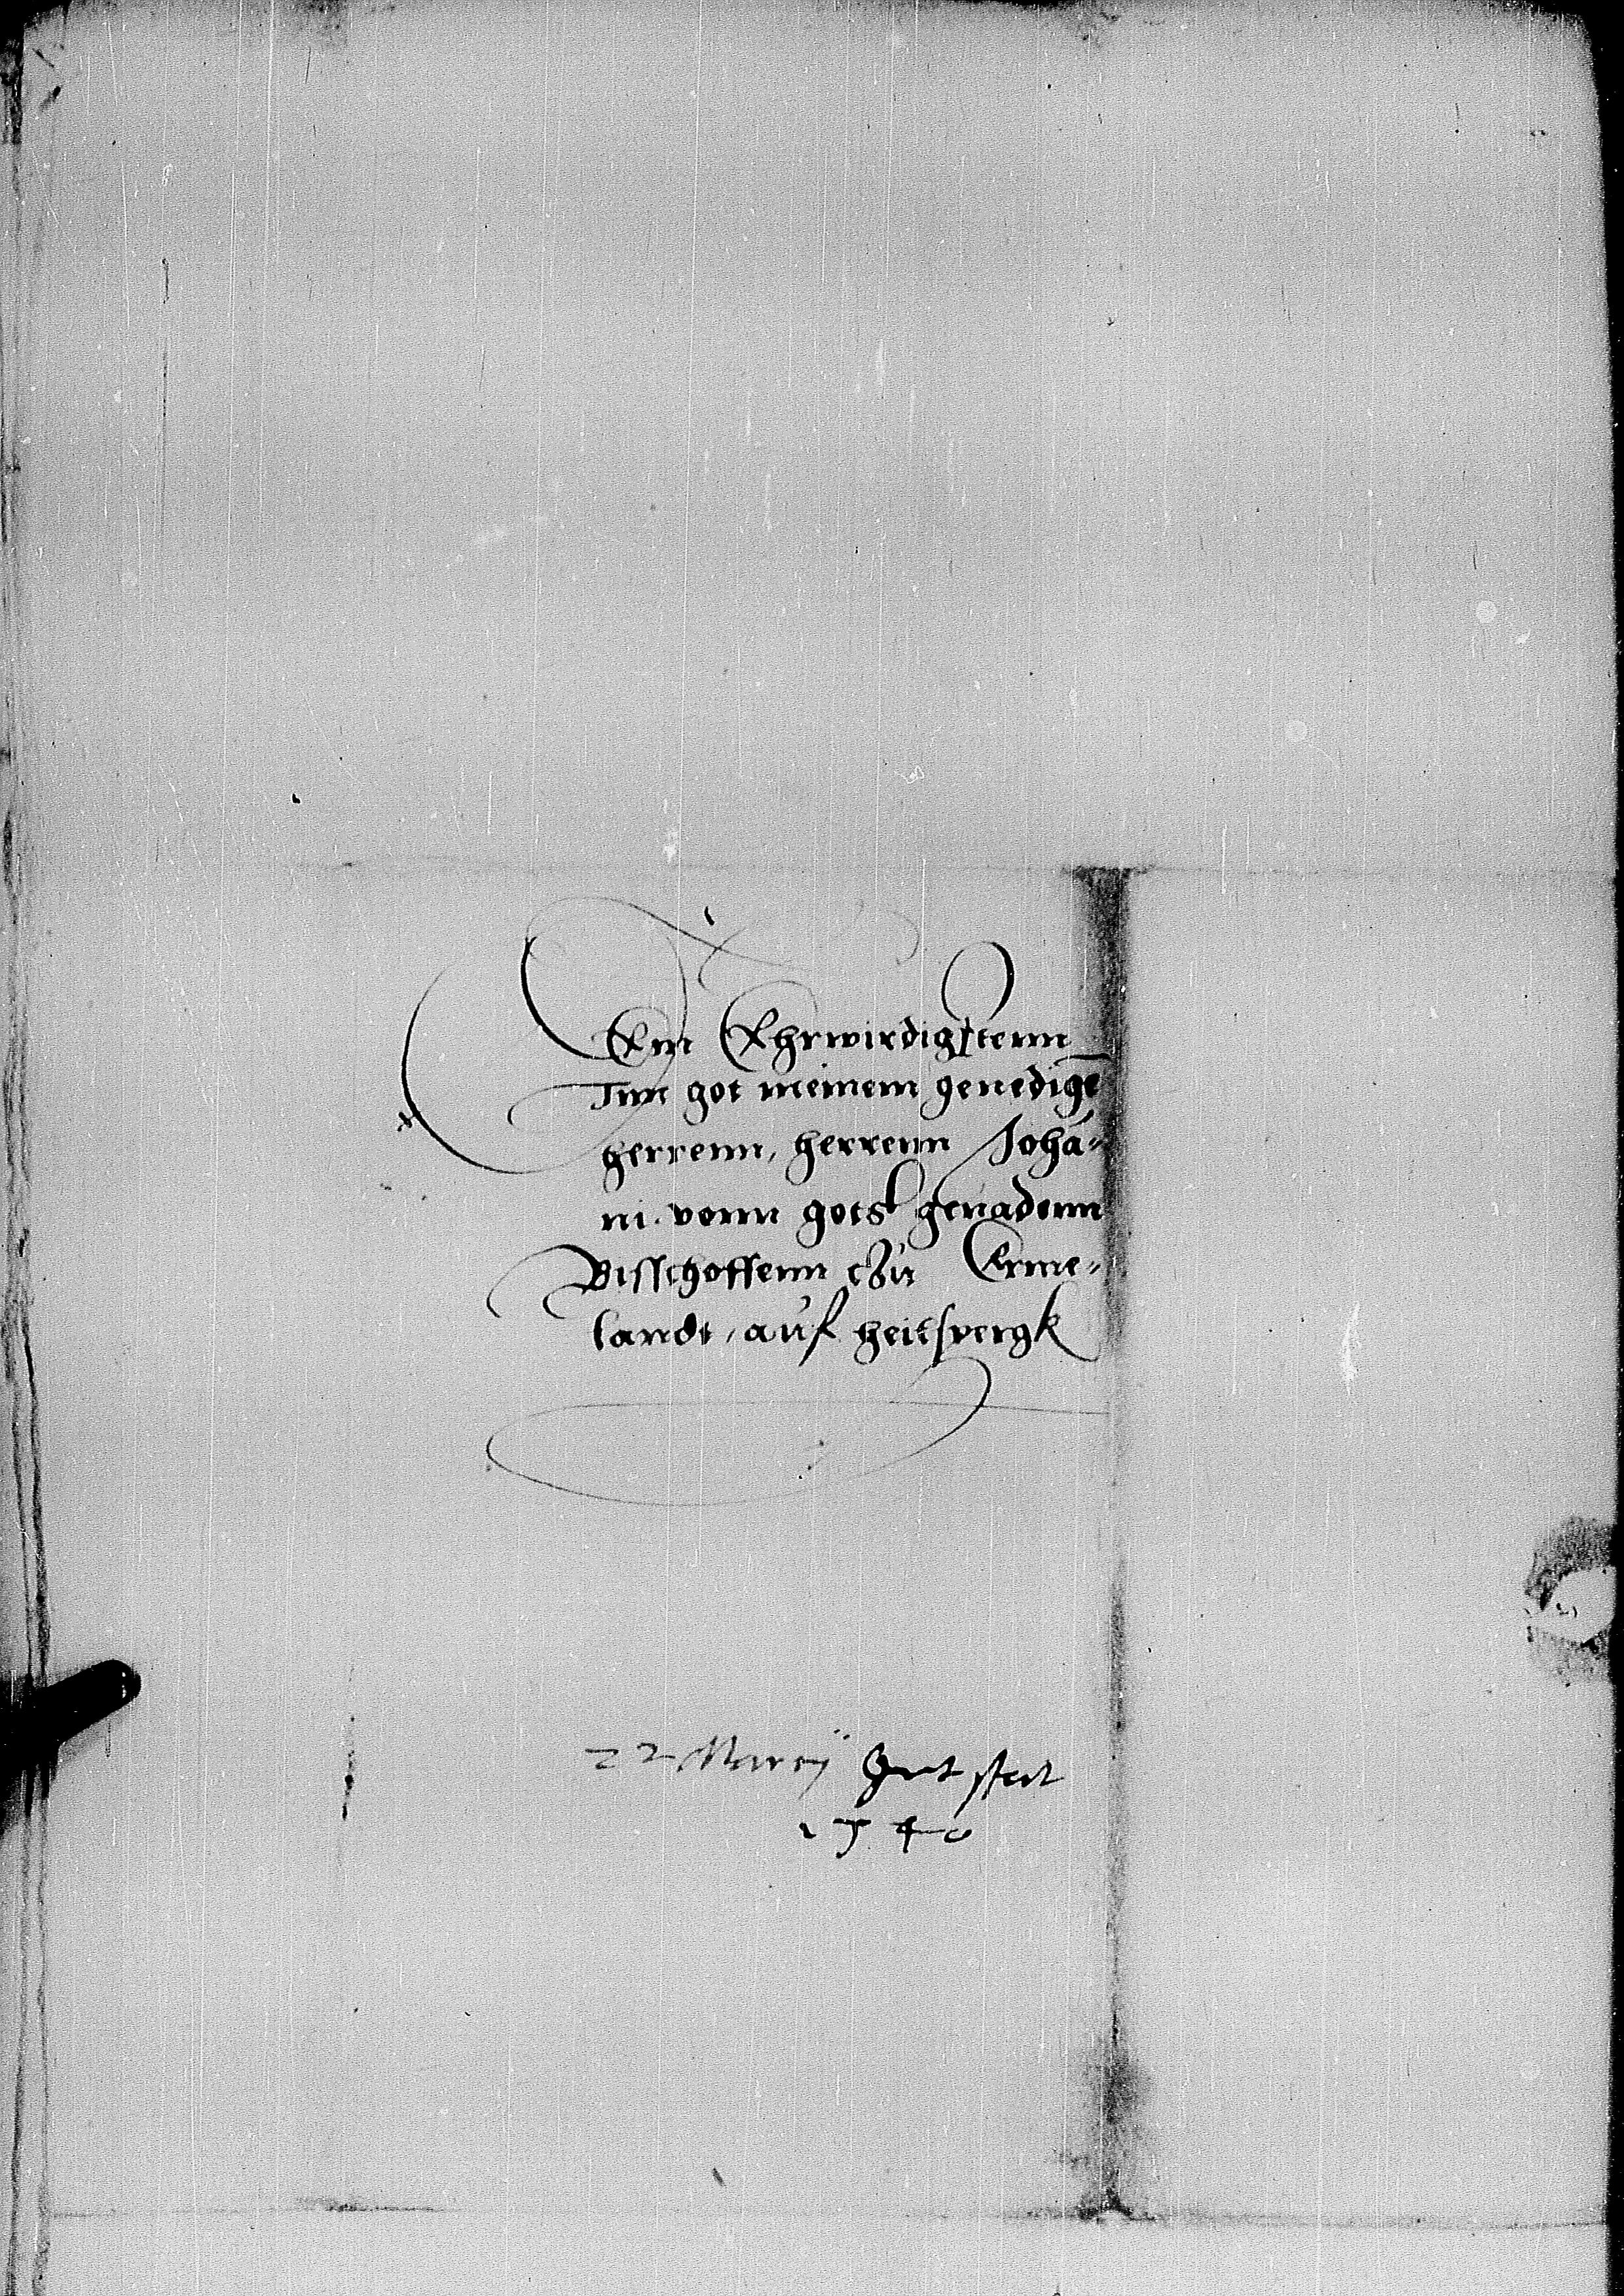 Dem Ehrwirdigstenn
Inn got meinem genedigē
herrenn, herrenn Johā-
ni. vonn gots genadenn
Bisschoffenn czu Erme-
landt, auf heilspergk
22 Marcij Gutstat
1540